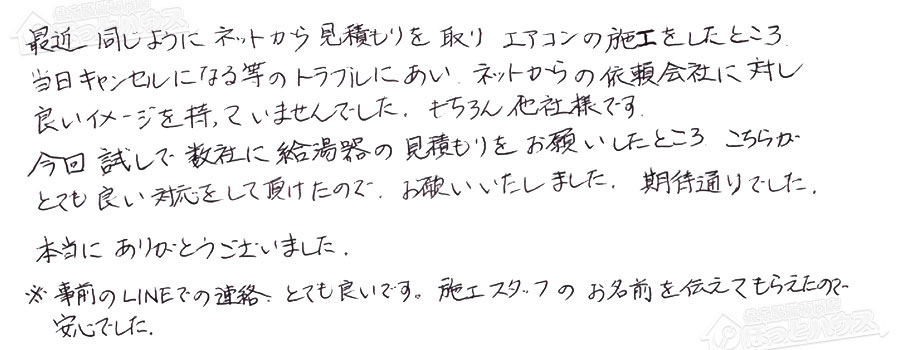 最近 同じように ネットから 見積もりを 取り エアコンの施工をしたところ
当日キャンセルになる等のトラブルにあい、ネットからの依頼会社に対し
良いイメージを持っていませんでした。もちろん他社様です。
今回 試しで 数社に 給湯器の見積もりを お願いしたところ こちらが
とても良い対応をして頂けたので、お願いいたしました。期待通りでした。
本当に ありがとうございました。
※ 事前のLINEでの連絡、とても良いです。施工スタッフの お名前を伝えてもらえたので
安心でした。
ほっとハウス